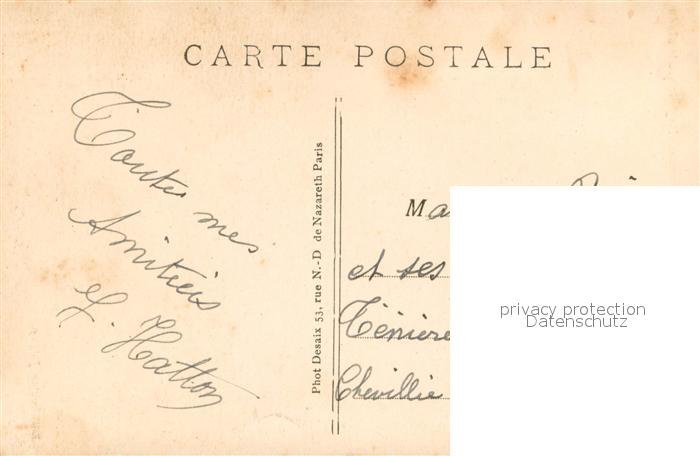 CARTE POSTALE
Toutes mes
Amitiés
Hatton
Phot Desaix 53, rue N.-D de Nazareth Paris
et ses
Chevillie
privacy protection
Datenschutz